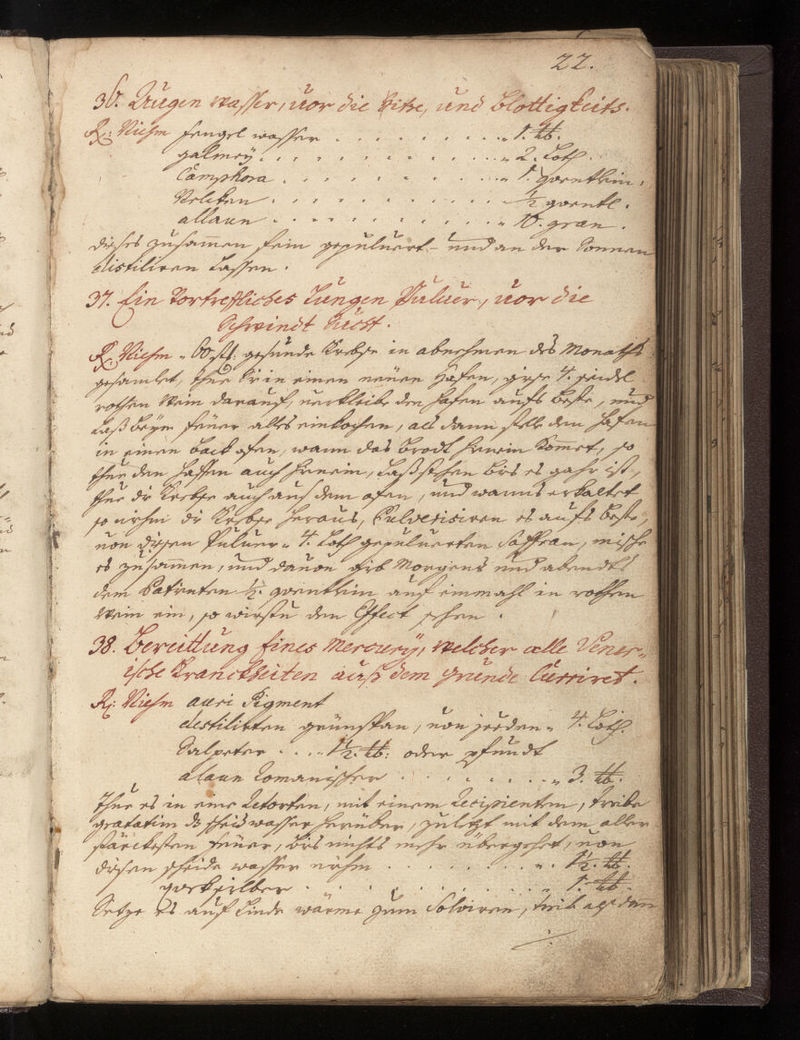 22.
36. Augen wasser, vor die Hitze, und blöttigkeits.
Rx: Niehm fengel wasser . . . . . . . . . 1. ℔.
galmeÿ . . . . . . . . . . . 2. Loth.
Camphora . . . . . . . . . . 1. quentlein.
Nelcken . . . . . . . . . . ½ quentl.
allaun . . . . . . . . . . 10. gran.
dieses zusamen fein gepulvert und an der Sonnen
distiliren Lassen.
37. Ein Vortrefliches Lungen Pulver, vor die
Schwindt sucht.
Rx. Niehm 60 st: gesunde Krebse in abnehmen des Monaths
gesamlet, thue sie in einen neuen Hafen, giese 4. seidel
rothen Wein darauf, verkleibe den hafen aufs beste, und
Laß beÿm feuer alles einkochen, als dann stelle den Hafen
in einen back ofen, wann das brodt herein komet, so
thue den Haffen auch hinein, Laß stehen bis es gahr ist,
thue die Krebse auch aus dem ofen, und wanns erkaltet
so niehm die Krebse heraus, Pulverisiren es aufs beste,
von diesen Pulver 4. Loth gepulverten Saffran, mische
es zusammen, und davon gib Morgens und abendts
dem Patienten ½. quentlein auf einmahl in rothen
Wein ein, so wirstu den Effect sehen.
38. Bereittung Eines Mercurÿ, welcher alle Vener-
ische Kranckheiten auß dem grunde Curriret.
Rx: Niehm auri Pigment
destilirten grünspan, von jeeden 4. Loth.
Salpeter . . . . 1½. ℔: oder pfundt
alaun Romanischer . . . . . . . . 3. ℔.
Thue es in eine Retorten, mit einem Recipienten, treibe
gradatim das scheidwasser herüber, zuletzt mit dem aller
stärcksten feuer, bis nichts mehr übergehet, von
diesen scheide wasser niehm . . . . . . . . 1½. ℔.
queksilber . . . . . . . . . . . . 1. ℔.
Setze es auf Linde wärme zum Solviren, treib alß dan